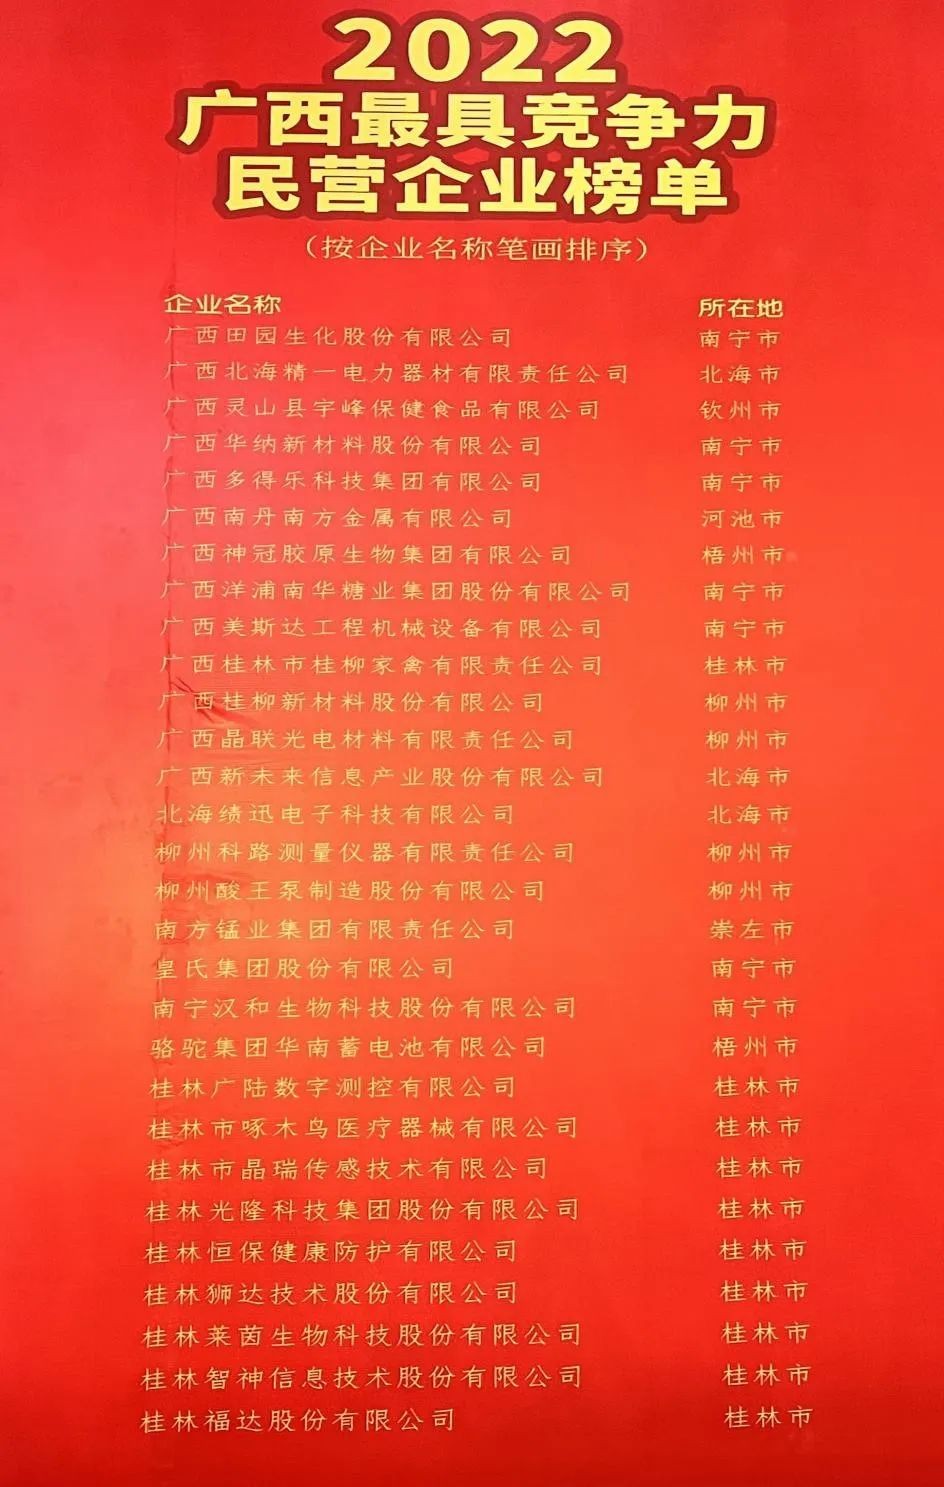 2022
广西最具竞争力
民营企业榜单
（按企业名称笔画排序）
企业名称 所在地
广西田园生化股份有限公司 南宁市
广西北海精一电力器材有限责任公司 北海市
广西灵山县宇峰保健食品有限公司 钦州市
广西华纳新材料股份有限公司 南宁市
广西多得乐科技集团有限公司 南宁市
广西南丹南方金属有限公司 河池市
广西神冠胶原生物集团有限公司 梧州市
广西洋浦南华糖业集团股份有限公司 南宁市
广西美斯达工程机械设备有限公司 南宁市
广西桂林市桂柳家禽有限责任公司 桂林市
广西桂柳新材料股份有限公司 柳州市
广西晶联光电材料有限责任公司 柳州市
广西新未来信息产业股份有限公司 北海市
北海绩迅电子科技有限公司 北海市
柳州科路测量仪器有限责任公司 柳州市
柳州酸王泵制造股份有限公司 柳州市
南方锰业集团有限责任公司 崇左市
皇氏集团股份有限公司 南宁市
南宁汉和生物科技股份有限公司 南宁市
骆驼集团华南蓄电池有限公司 梧州市
桂林广陆数字测控有限公司 桂林市
桂林市啄木鸟医疗器械有限公司 桂林市
桂林市晶瑞传感技术有限公司 桂林市
桂林光隆科技集团股份有限公司 桂林市
桂林恒保健康防护有限公司 桂林市
桂林狮达技术股份有限公司 桂林市
桂林莱茵生物科技股份有限公司 桂林市
桂林智神信息技术股份有限公司 桂林市
桂林福达股份有限公司 桂林市